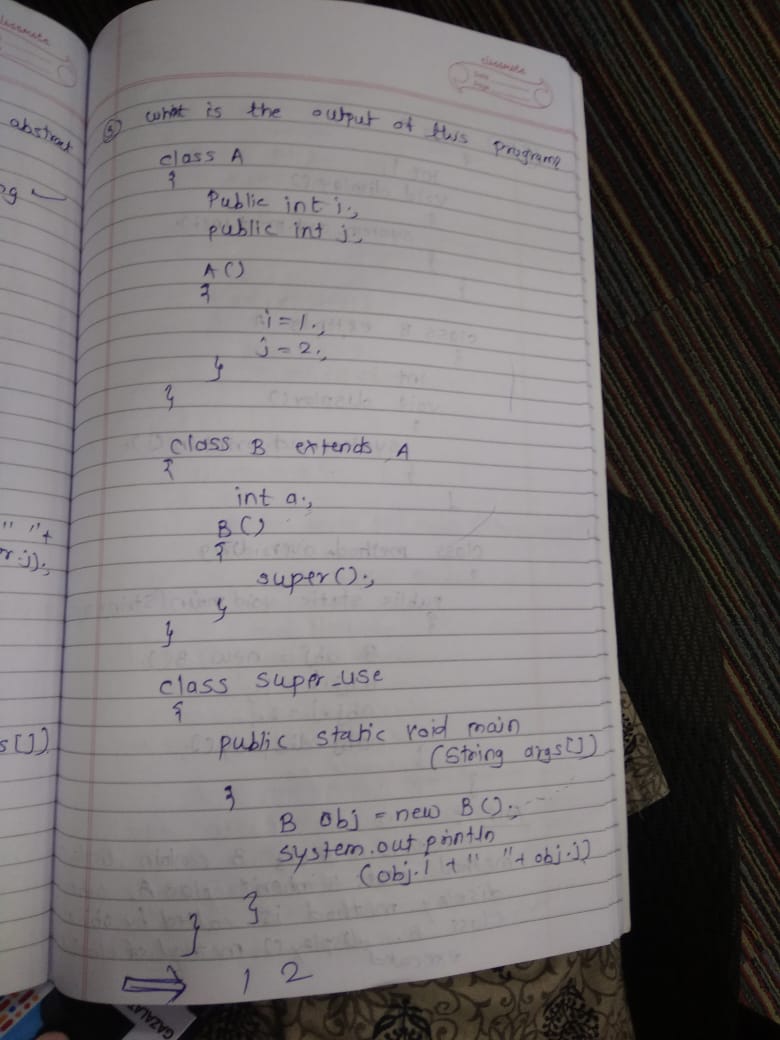 classmate
abstract
ng
" "+
r.j);
s[])
classmate
Date
Page
5) what is the output of this program
class A
{
Public int i;
public int j;
A()
{
i = 1;
j = 2;
}
}
class B extends A
{
int a;
B()
{
super();
}
}
class super_use
{
public static void main
(String args[])
{
B obj = new B();
system.out.println
(obj.i + " " + obj.j)
}
}
⇒ 1 2
GAZALA